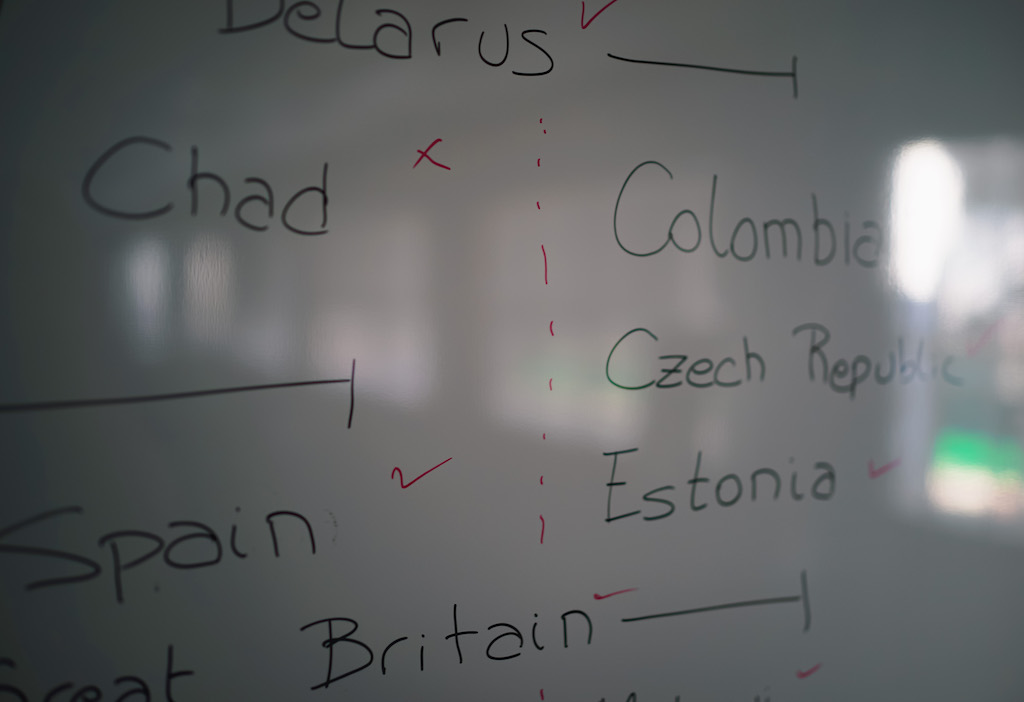 Belarus
Chad
Colombia
Czech Republic
Estonia
Spain
Great Britain